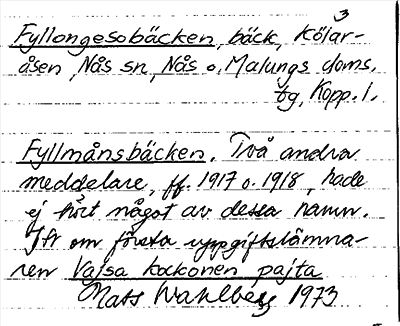 3
Fyllongesobäcken, bäck, Kölar-
åsen, Nås sn, Nås o. Malungs doms.
tg, Kopp. l.
Fyllmånsbäcken. Två andra
meddelare, ff. 1917 o. 1918, hade
ej hört något av dessa namn.
Jfr om första uppgiftslämna-
ren Vajsa kokonen pajta
Mats Wahlberg 1973